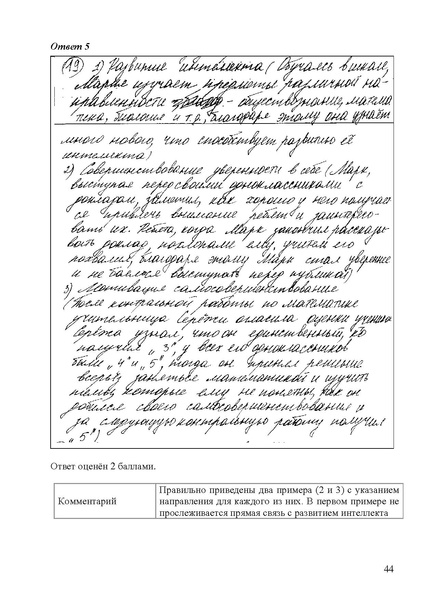 Ответ 5
(19) 1) Развитие интеллекта (Обучаясь в школе,
Мария изучает предметы различной на-
правленности - обществознание, матема
тика, биология и т.д., благодаря этому она узнаёт
много нового, что способствует развитию её
интеллекта)
2) Совершенствование уверенности в себе (Марк,
выступая перед своими одноклассниками с
докладом, заметил, как хорошо у него получает
ся привлечь внимание ребят и заинтересо-
вать их. Ребята, когда Марк закончил рассказы
вать доклад, похлопали ему, учитель его
похвалил, благодаря этому Марк стал увереннее
и не боялся выступать перед публикой)
3) Мотивация самосовершенствование
(После контрольной работы по математике
учительница Серёжи огласила оценки ученико
Серёжа узнал, что он единственный, кто
получил „3", у всех его одноклассников
были „4" и „5", тогда он принял решение
всерьёз заняться математикой и изучить
темы, которые ему не понятны, так он
добился своего самосовершенствования и
за следующую контрольную работу получил
„5")
Ответ оценён 2 баллами.
Комментарий
Правильно приведены два примера (2 и 3) с указанием
направления для каждого из них. В первом примере не
прослеживается прямая связь с развитием интеллекта
44